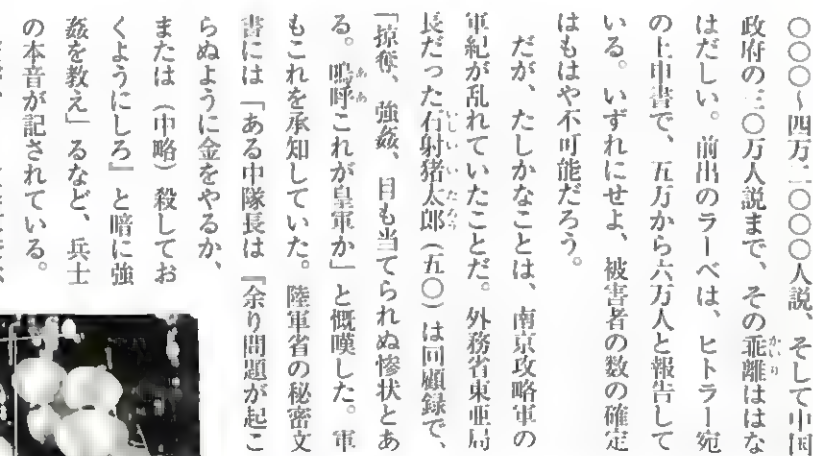 〇〇〇〜四万二〇〇〇人説、そして中国
政府の三〇万人説まで、その乖離ははな
はだしい。前出のラーベは、ヒトラー宛
の上申書で、五万から六万人と報告して
いる。いずれにせよ、被害者の数の確定
はもはや不可能だろう。
だが、たしかなことは、南京攻略軍の
軍紀が乱れていたことだ。外務省東亜局
長だった石射猪太郎（五〇）は回顧録で、
「掠奪、強姦、目も当てられぬ惨状とあ
る。嗚呼これが皇軍か」と慨嘆した。軍
もこれを承知していた。陸軍省の秘密文
書には「ある中隊長は『余り問題が起こ
らぬように金をやるか、
または（中略）殺してお
くようにしろ』と暗に強
姦を教え」るなど、兵士
の本音が記されている。